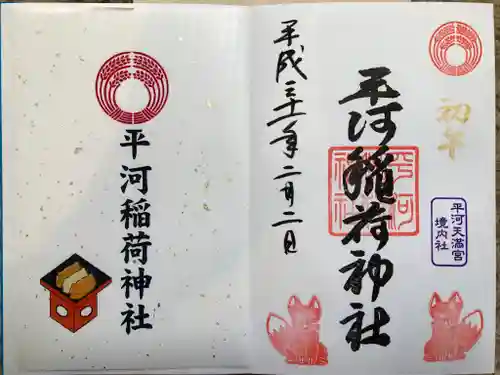 初午
平河天満宮
境内社
平河稲荷神社
平河稲荷神社
平成三十一年二月二日
平河稲荷神社